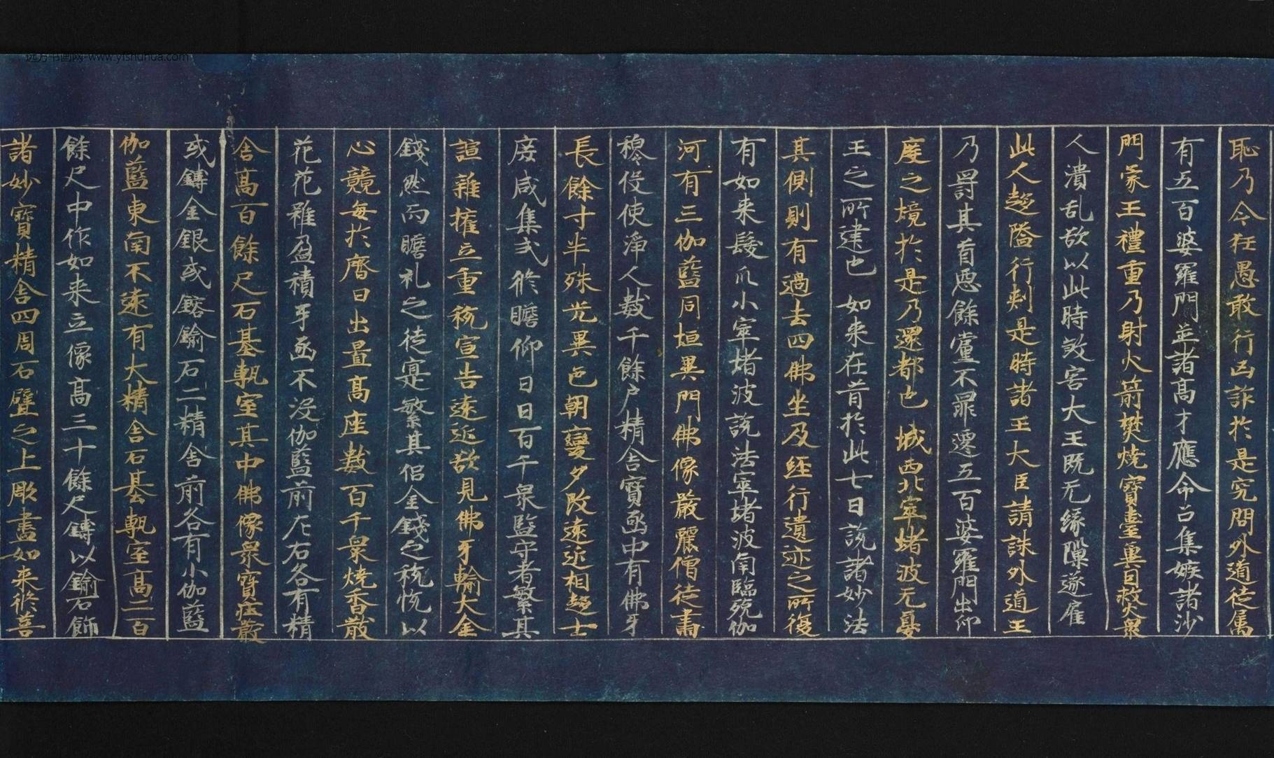 恥乃令狂愚敢行凶詐於是究問外道徒属
有五百婆羅門並諸高才應命召集嫉諸沙
門蒙王禮重乃射火箭焚燒寳臺兾因救火衆
人潰乱欲以此時敚害大王既无縁隙遂雇
此人趍隘行刺是時諸王大臣請誅外道王
乃罸其首惡餘黨不罪遷五百婆羅門出印
度之境於是乃還都也 城西北窣堵波无憂
王之所建也 如来在昔於此七日説諸妙法
其側則有過去四佛坐及経行遺迹之所復
有如来髮爪小窣堵波説法窣堵波南臨殑伽
河有三伽藍同垣異門佛像嚴麗僧徒肅
穆役使浄人數千餘户精舎寳凾中有佛牙
長餘寸半殊光異色朝變夕改遠近相趍士
庻咸集式修瞻仰日日百千衆監守者繁其
諠雜權立重稅宣告遠近欲見佛牙輸大金
錢然而瞻礼之徒寔繁其侶金錢之稅悅以
心競每於齋日出置高座數百千衆燒香散
花花雖盈積牙凾不没伽藍前左右各有精
舎髙百餘尺石基甎室其中佛像衆寳庄嚴
或鑄金銀或鎔鍮石二精舎前各有小伽藍
伽藍東南不遠有大精舎石基甎室高二百
餘尺中作如来立像高三十餘尺鑄以鍮石飾
諸妙寳精舎四周石壁之上彫畫如来修菩
www.yishuhua.com